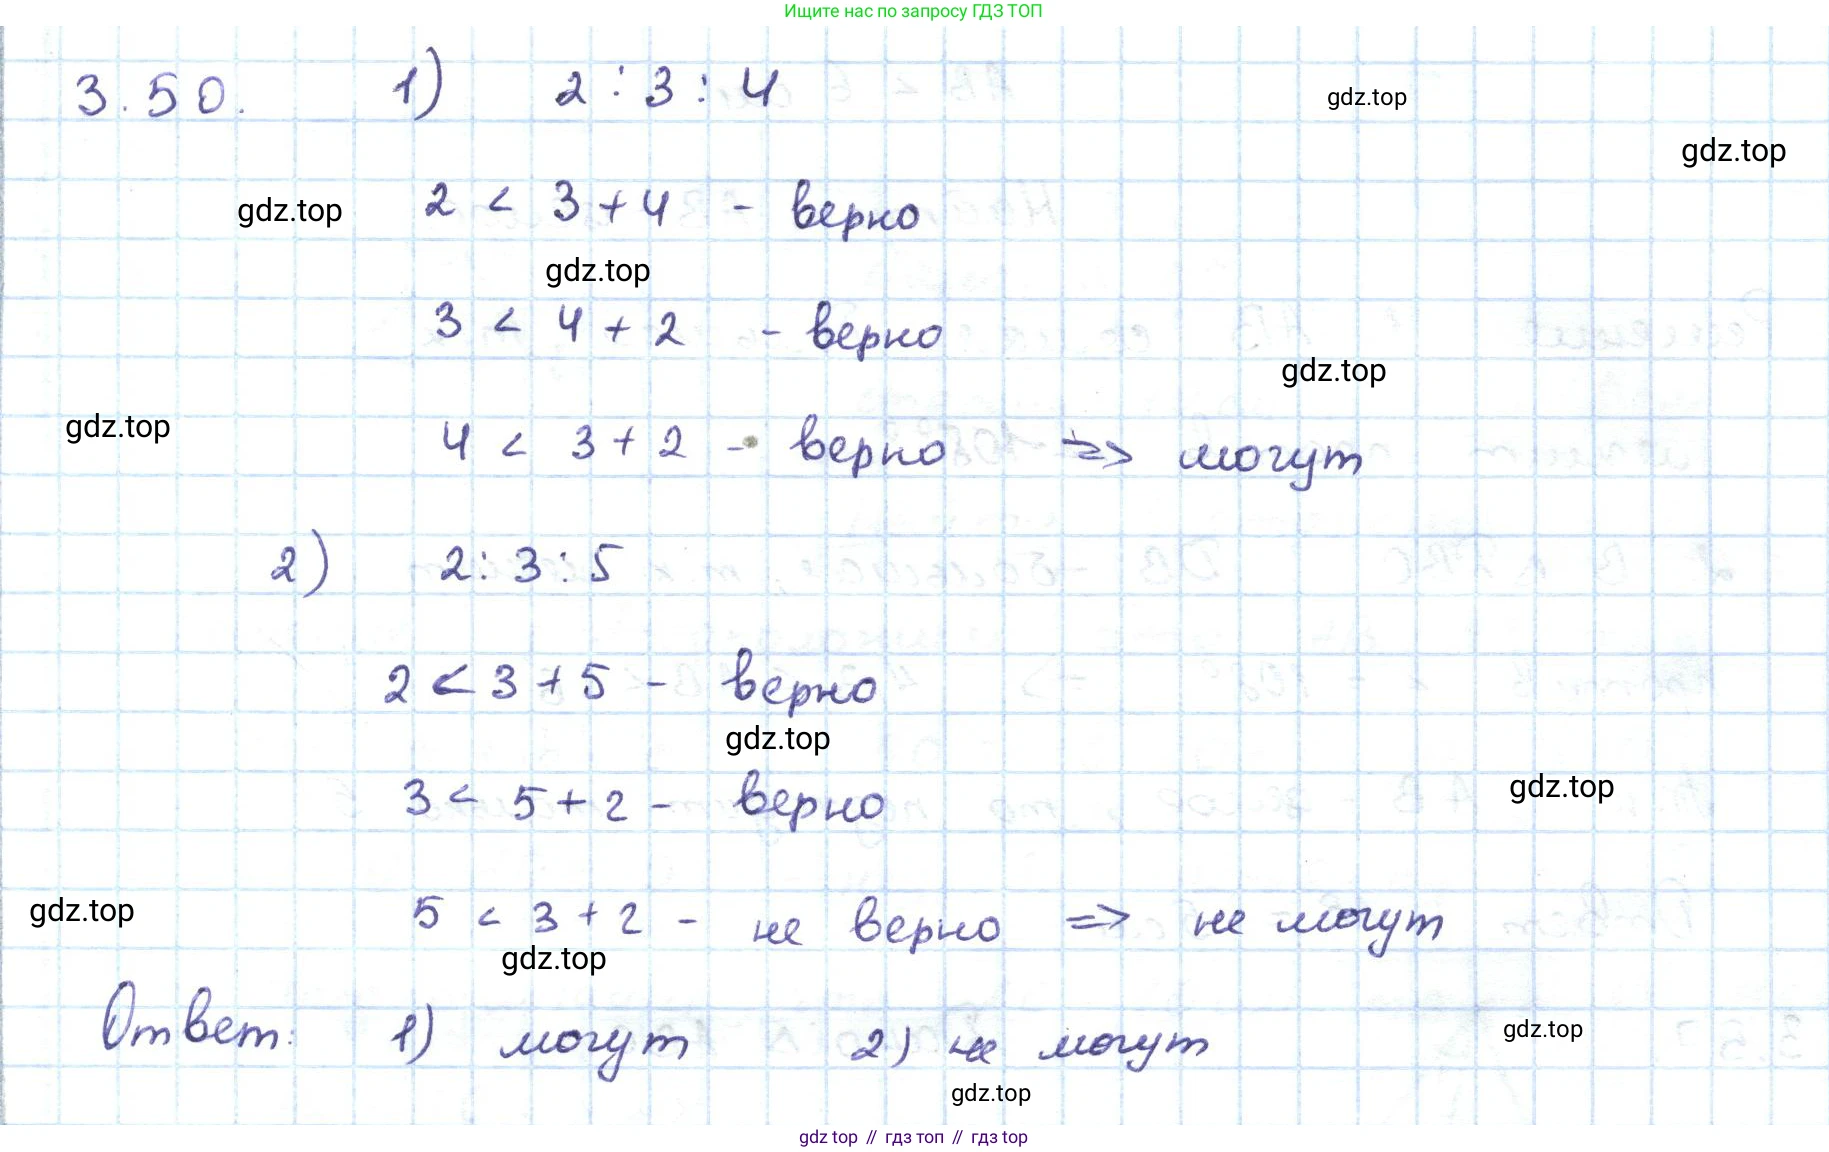 Ищите нас по запросу ГДЗ ТОП
3.50. 1) 2 : 3 : 4
gdz.top
gdz.top
gdz.top 2 < 3 + 4 - верно
gdz.top
3 < 4 + 2 - верно
gdz.top
gdz.top 4 < 3 + 2 - верно => могут
2) 2 : 3 : 5
2 < 3 + 5 - верно
gdz.top
3 < 5 + 2 - верно
gdz.top
gdz.top 5 < 3 + 2 - не верно => не могут
gdz.top
Ответ: 1) могут 2) не могут
gdz.top
gdz.top
gdz top // гдз топ // гдз top